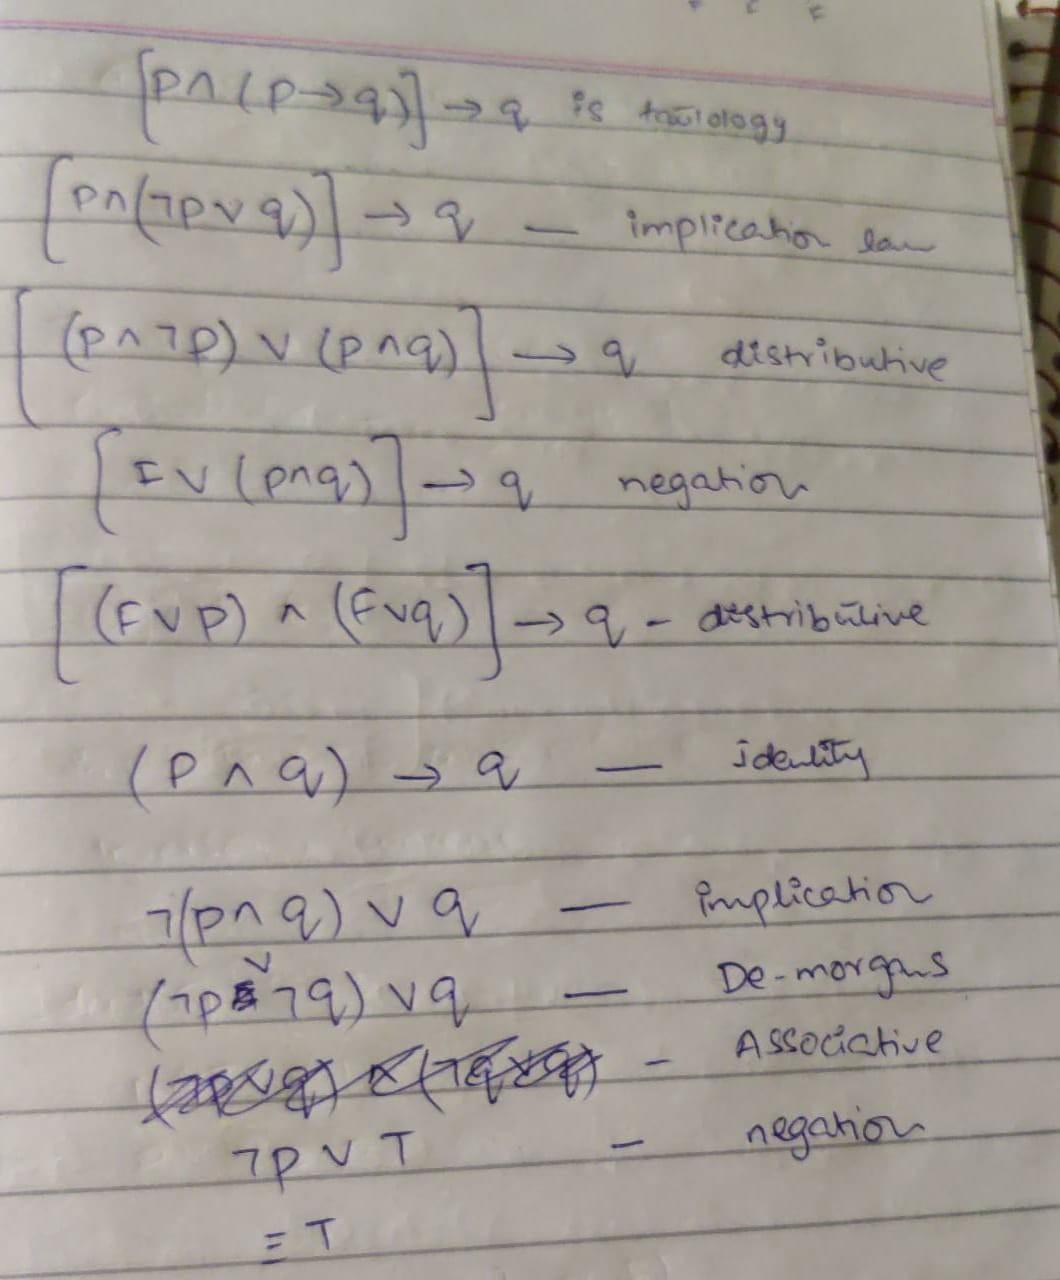 [p∧(p→q)]→q is tautology
[p∧(¬p∨q)]→q — implication law
[(p∧¬p)∨(p∧q)]→q distributive
[F∨(p∧q)]→q negation
[(F∨p)∧(F∨q)]→q - distributive
(p∧q)→q — identity
¬(p∧q)∨q — implication
(¬p∨¬q)∨q — De-morgans
- Associative
¬p∨T - negation
≡T